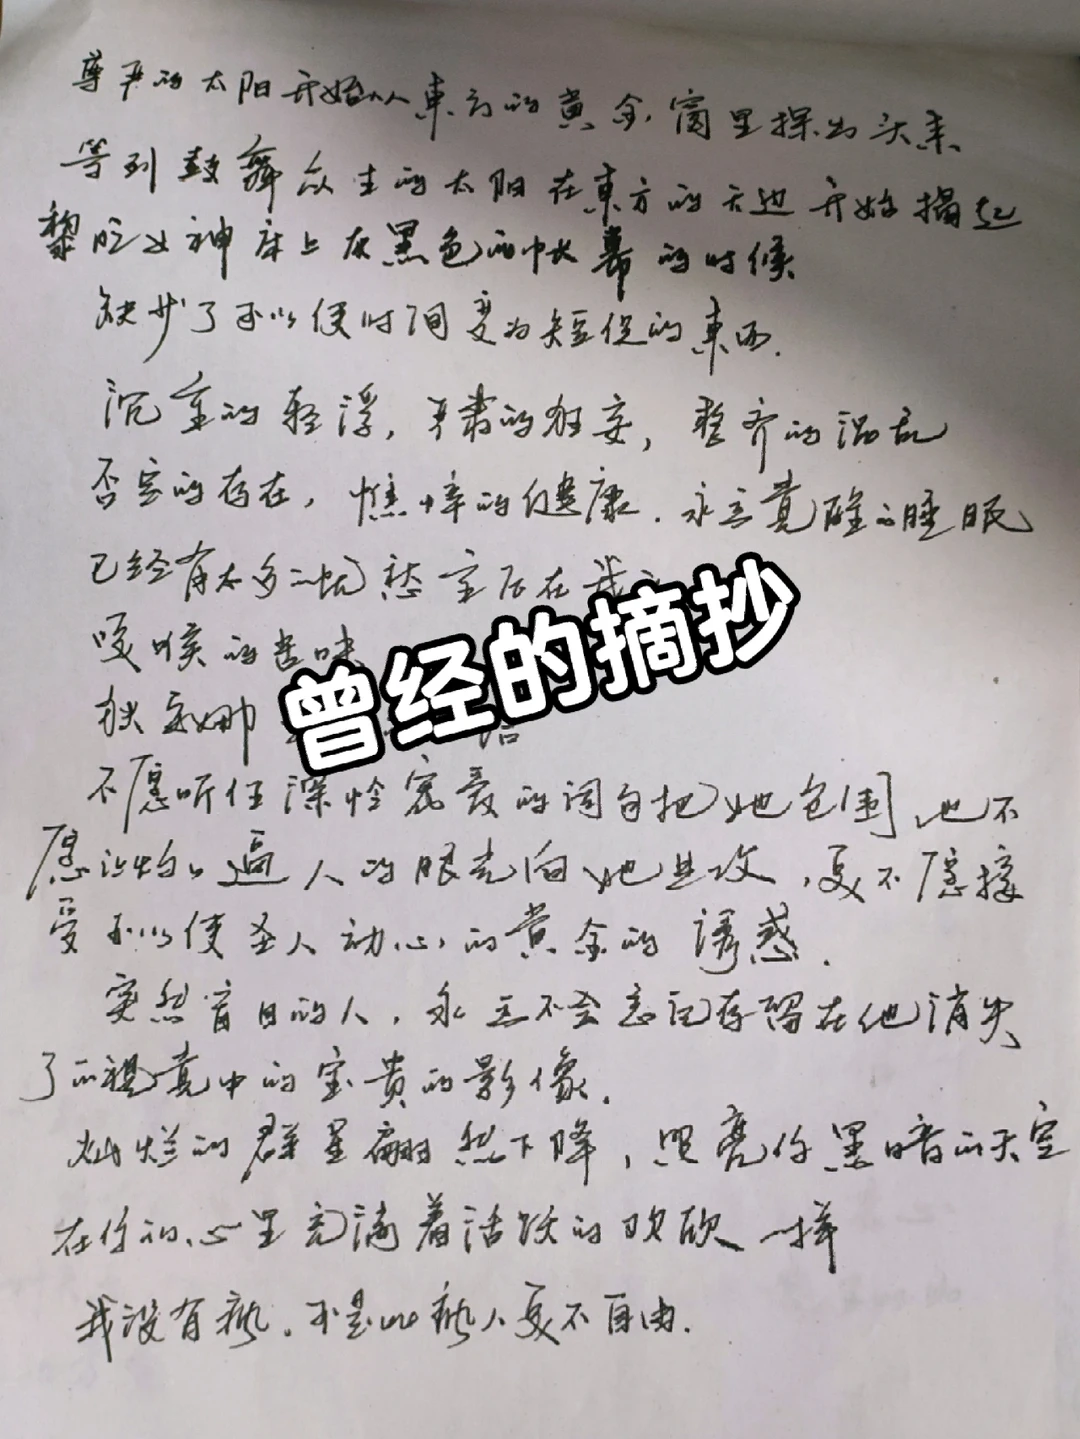 尊严的太阳开始从東方的黄金窗里探出头来
等到鼓舞众生的太阳在東方的天边开始揭起
黎明女神床上灰黑色的帐幕的时候
缺少了可以使时间变为短促的東西.
沉重的轻浮,严肃的狂妄,整齐的混乱
否定的存在,憔悴的健康.永远觉醒的睡眠
已经有太多的忧愁室压在我
哽喉的苦味
狄安娜
不愿听任深怜蜜爱的词句把她包围,也不
愿让灼灼逼人的眼光向她进攻,更不愿接
受可以使圣人动心的黄金的诱惑.
突然盲目的人,永远不会忘记存留在他消失
了的视觉中的宝贵的影像.
灿烂的群星翩然下降,照亮你黑暗的天空
在你的心里充满着活跃的欢欣一样
我没有疯.可是比疯人更不自由.
曾经的摘抄